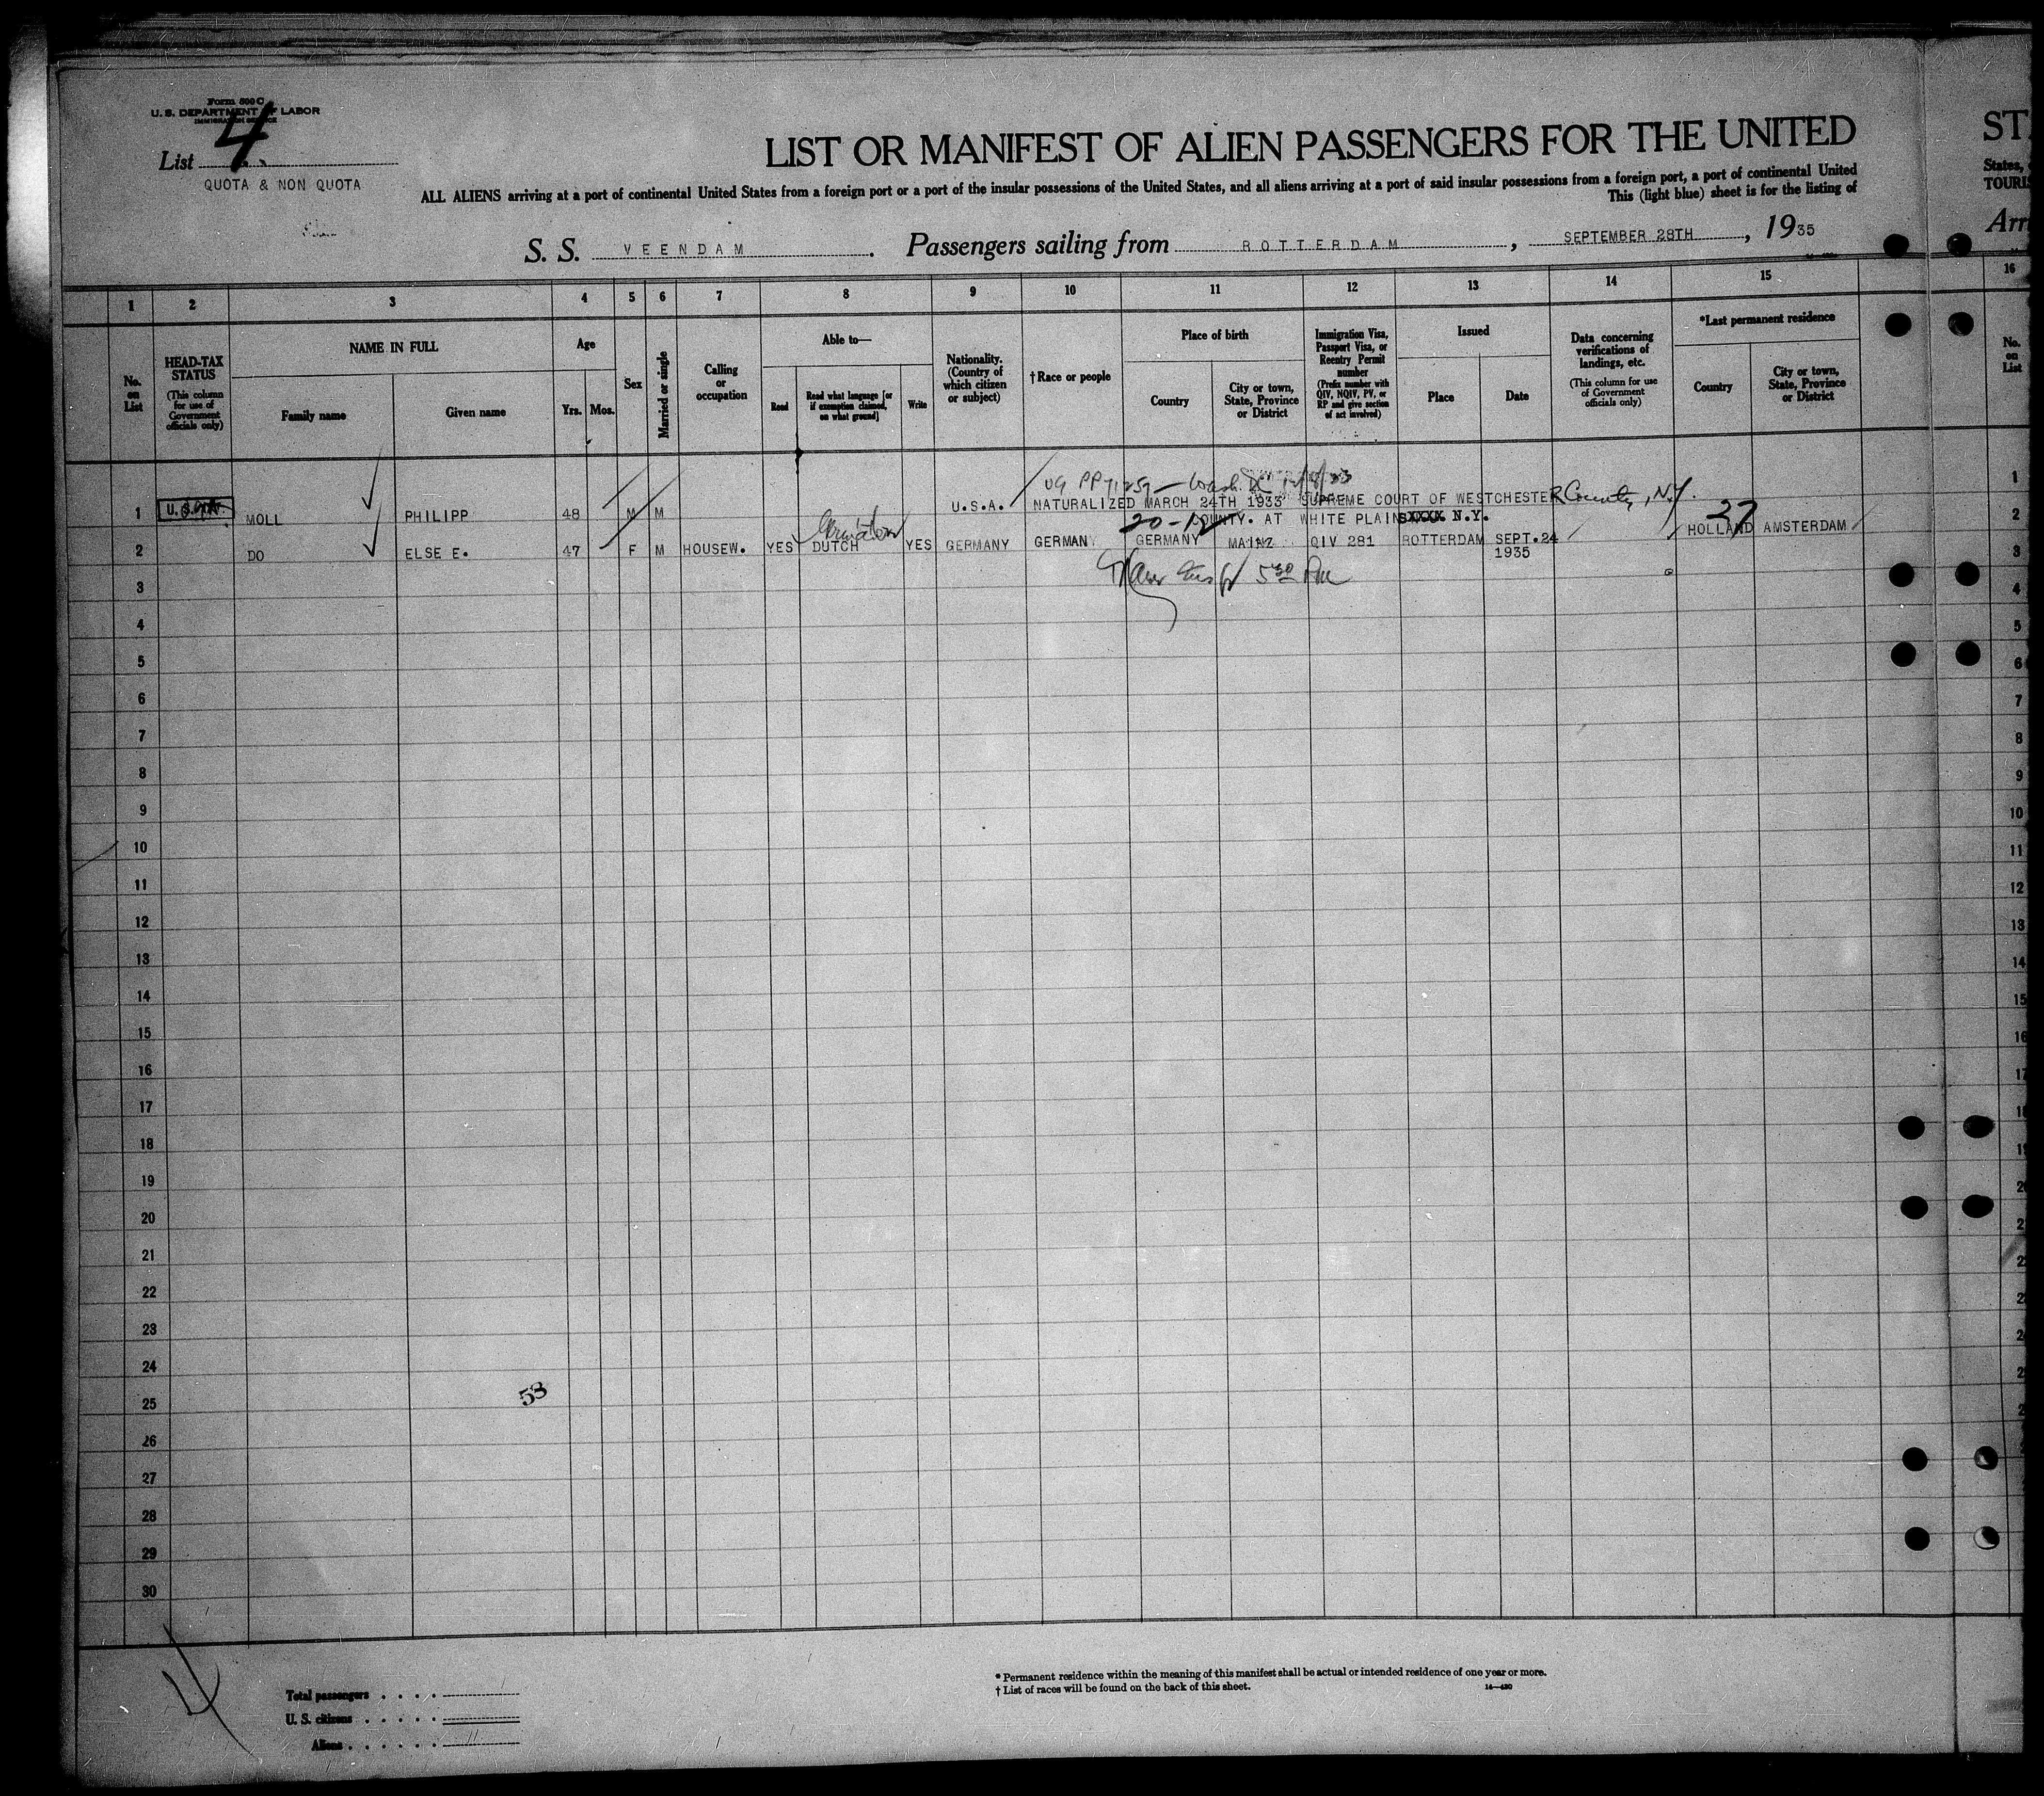 Form 500 C
U. S. DEPARTMENT OF LABOR
IMMIGRATION SERVICE
List 4
QUOTA & NON QUOTA
LIST OR MANIFEST OF ALIEN PASSENGERS FOR THE UNITED
ALL ALIENS arriving at a port of continental United States from a foreign port or a port of the insular possessions of the United States, and all aliens arriving at a port of said insular possessions from a foreign port, a port of continental United
This (light blue) sheet is for the listing of
S. S. VEENDAM. Passengers sailing from ROTTERDAM, SEPTEMBER 28TH, 1935
STA
States,
TOURIS
Arri
1 2 3 4 5 6 7 8 9 10 11 12 13 14 15 16
No. on List
HEAD-TAX STATUS
(This column for use of Government officials only)
NAME IN FULL
Family name
Given name
Age
Yrs.
Mos.
Sex
Married or single
Calling or occupation
Able to—
Read
Read what language [or if exemption claimed, on what ground]
Write
Nationality. (Country of which citizen or subject)
†Race or people
Place of birth
Country
City or town, State, Province or District
Immigration Visa, Passport Visa, or Reentry Permit number
(Prefix number with QIV, NQIV, PV, or RP and give section of act involved)
Issued
Place
Date
Data concerning verifications of landings, etc.
(This column for use of Government officials only)
*Last permanent residence
Country
City or town, State, Province or District
No. on List
1 MOLL PHILIPP 48 M M U.S.A. NATURALIZED MARCH 24TH 1933 SUPREME COURT OF WESTCHESTER County, N.Y.
20-12 COUNTY. AT WHITE PLAINS XXXX N.Y.
27
2 DO ELSE E. 47 F M HOUSEW. YES DUTCH YES GERMANY GERMAN GERMANY MAINZ QIV 281 ROTTERDAM SEPT.24 1935 HOLLAND AMSTERDAM
5 30 PM
3
4
5
6
7
8
9
10
11
12
13
14
15
16
17
18
19
20
21
22
23
24
25
26
27
28
29
30
53
4
Total passengers
U. S. citizens
Aliens
* Permanent residence within the meaning of this manifest shall be actual or intended residence of one year or more.
† List of races will be found on the back of this sheet.
14—430